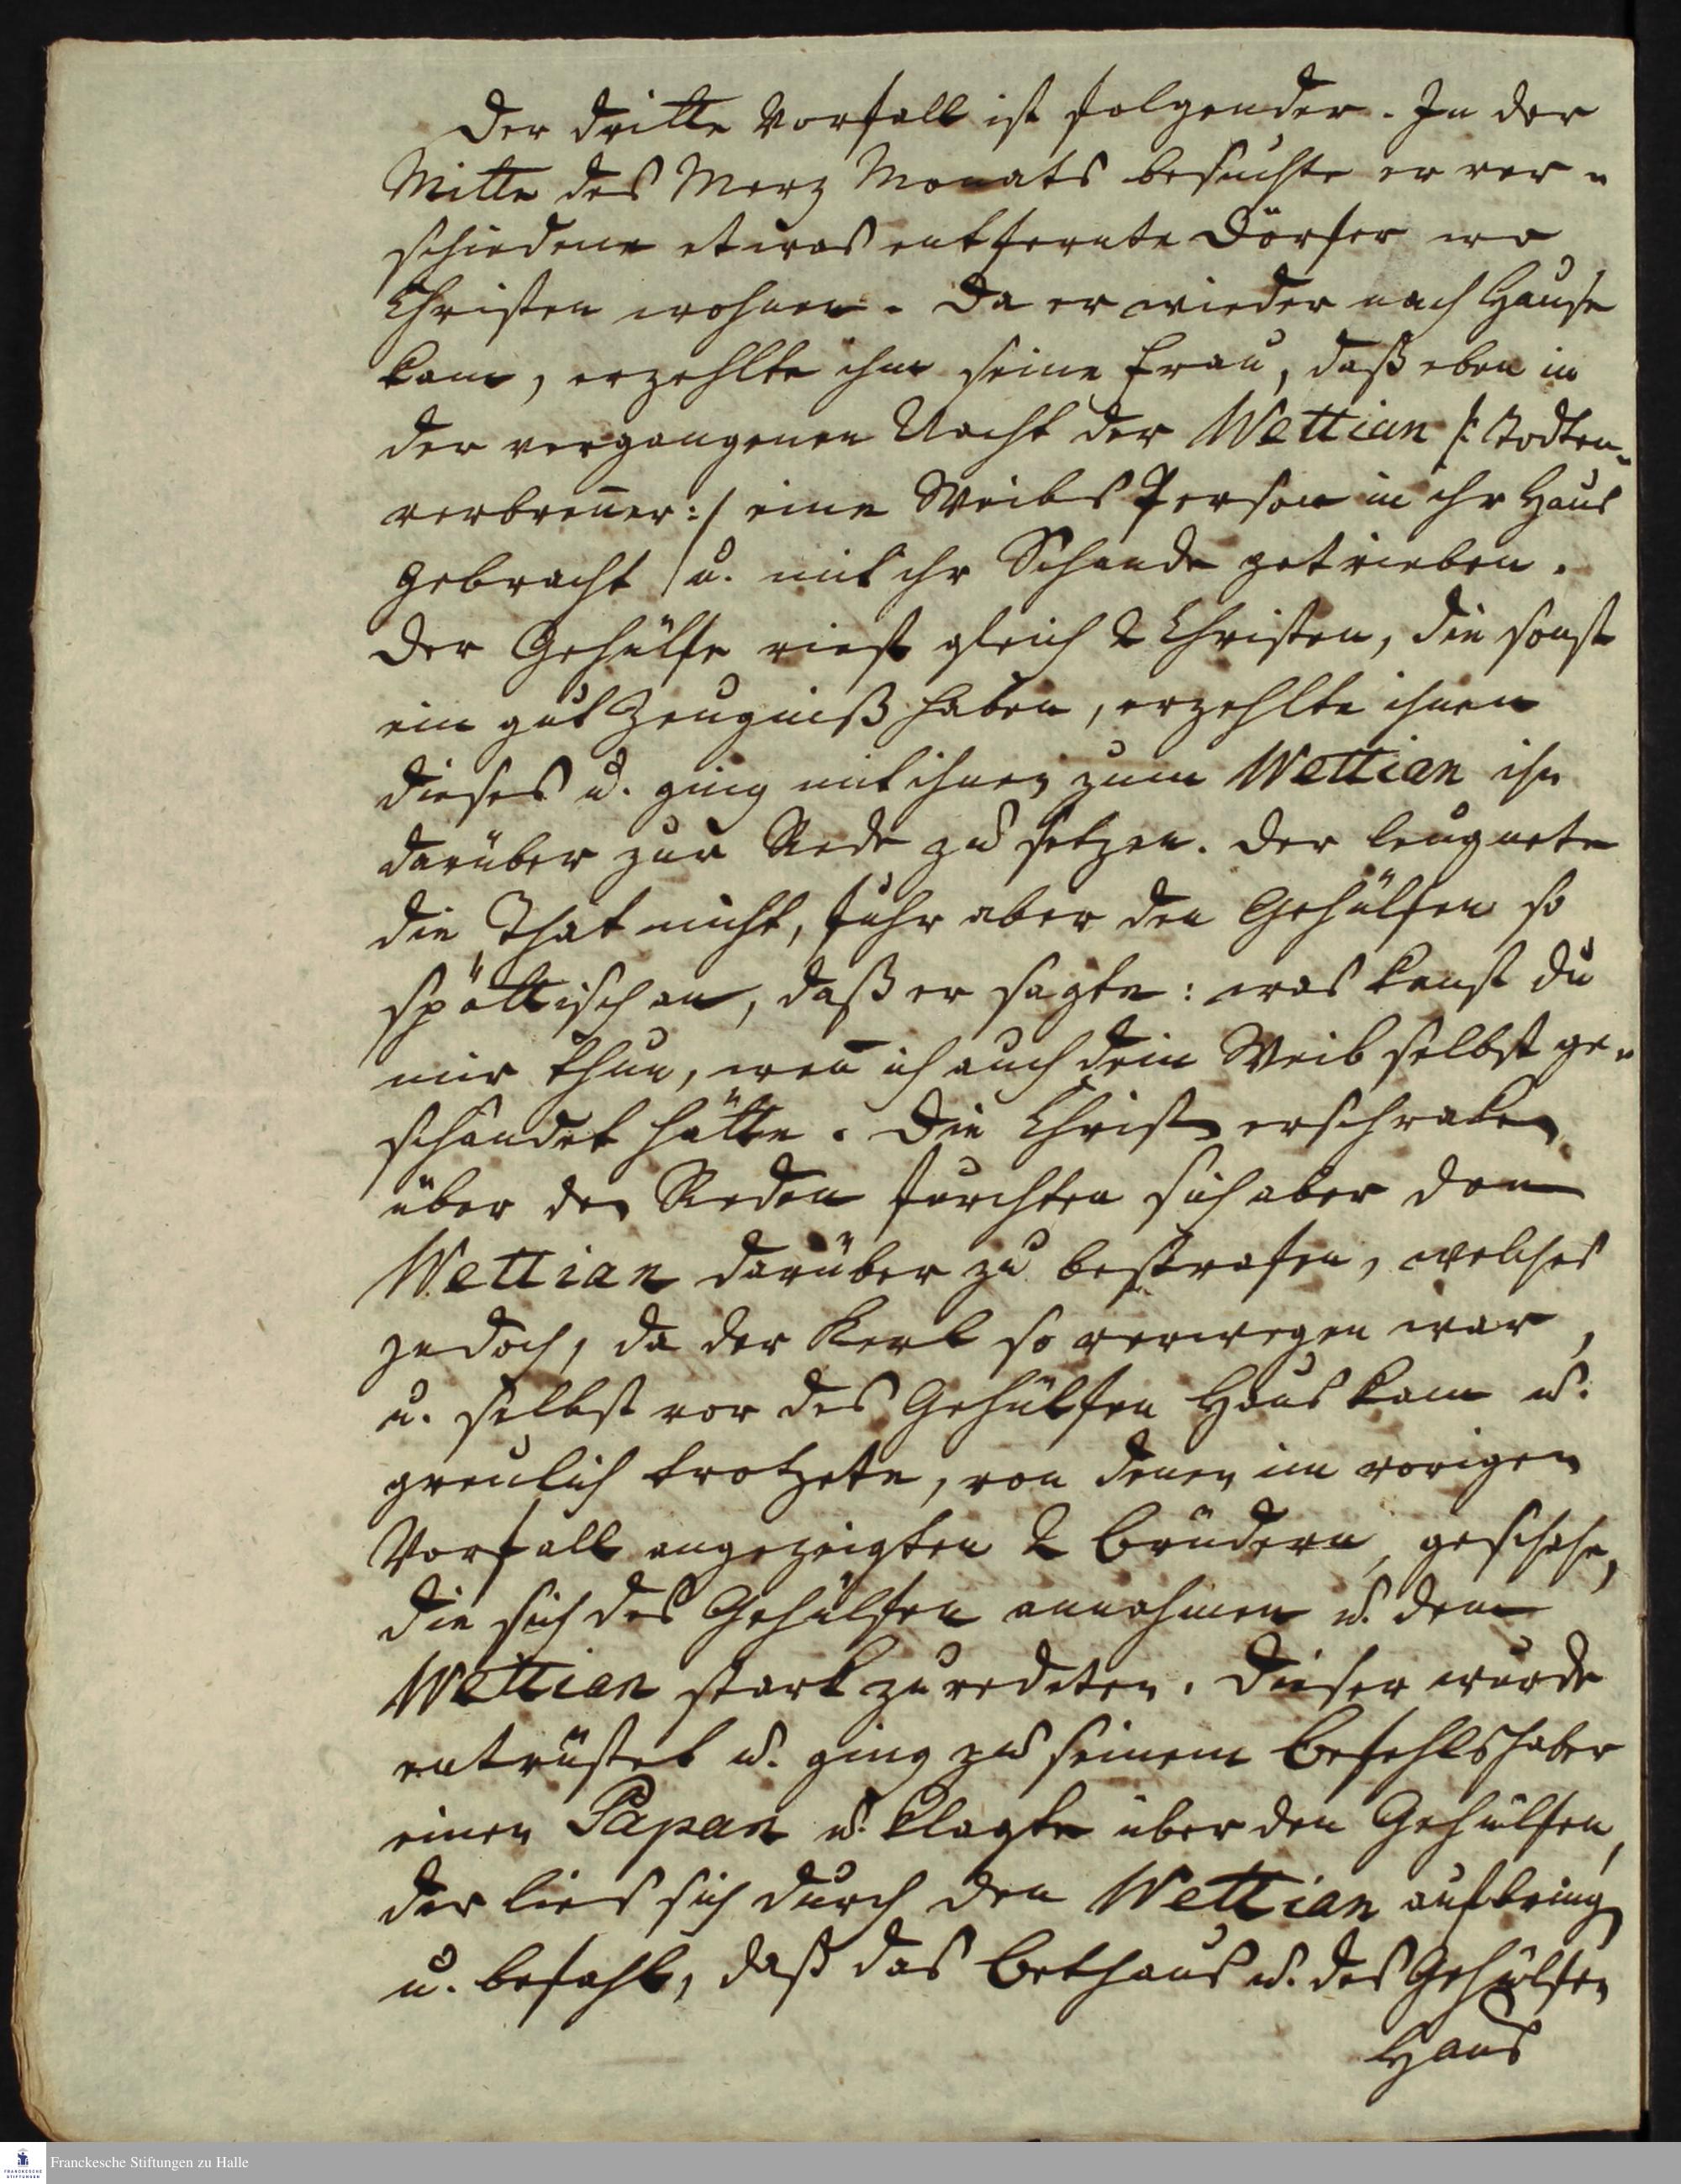 Der dritte Vorfall ist folgender. In der
Mitte des Merz Monats besuchte er ver-
schiedene etwas entfernte Dörfer wo
Christen wohnen. Da er wieder nach Hause
kam, erzehlte ihm seine Frau, daß eben in
der vergangenen Nacht der Wettian /: Todten-
verbren̄er :/ eine Weibs Person in ihr Haus
gebracht u. mit ihr Schande getrieben.
Der Gehülfe rief gleich 2 Christen, die sonst
ein gut Zeugniß haben, erzehlte ihnen
dieses u. ging mit ihnen zum Wettian ihn
darüber zur Rede zu setzen. Der leugnete
die That nicht, fuhr aber den Gehülfen so
spöttisch an, daß er sagte: was kanst du
mir thun, wen̄ ich auch dein Weib selbst ge-
schändet hätte. Die Christen erschraken
über den Reden furchten sich aber den
Wettian darüber zu bestrafen, welches
jedoch, da der Kerl so verwegen war,
u. selbst vor des Gehülfen Haus kam u.
greulich trotzete, von denen im vorigen
Vorfall angezeigten 2 Brüdern geschahe,
die sich des Gehülfen annahmen u. dem
Wettian stark zuredeten. Dieser wurde
entrüstet u. ging zu seinem Befehlshaber
einen Papan u. klagte über den Gehülfen,
der lies sich durch den Wettian aufbringen
u. befahl, daß das Bethaus u. des Gehülfen
Haus
Franckesche Stiftungen zu Halle
FRANCKESCHE
STIFTUNGEN